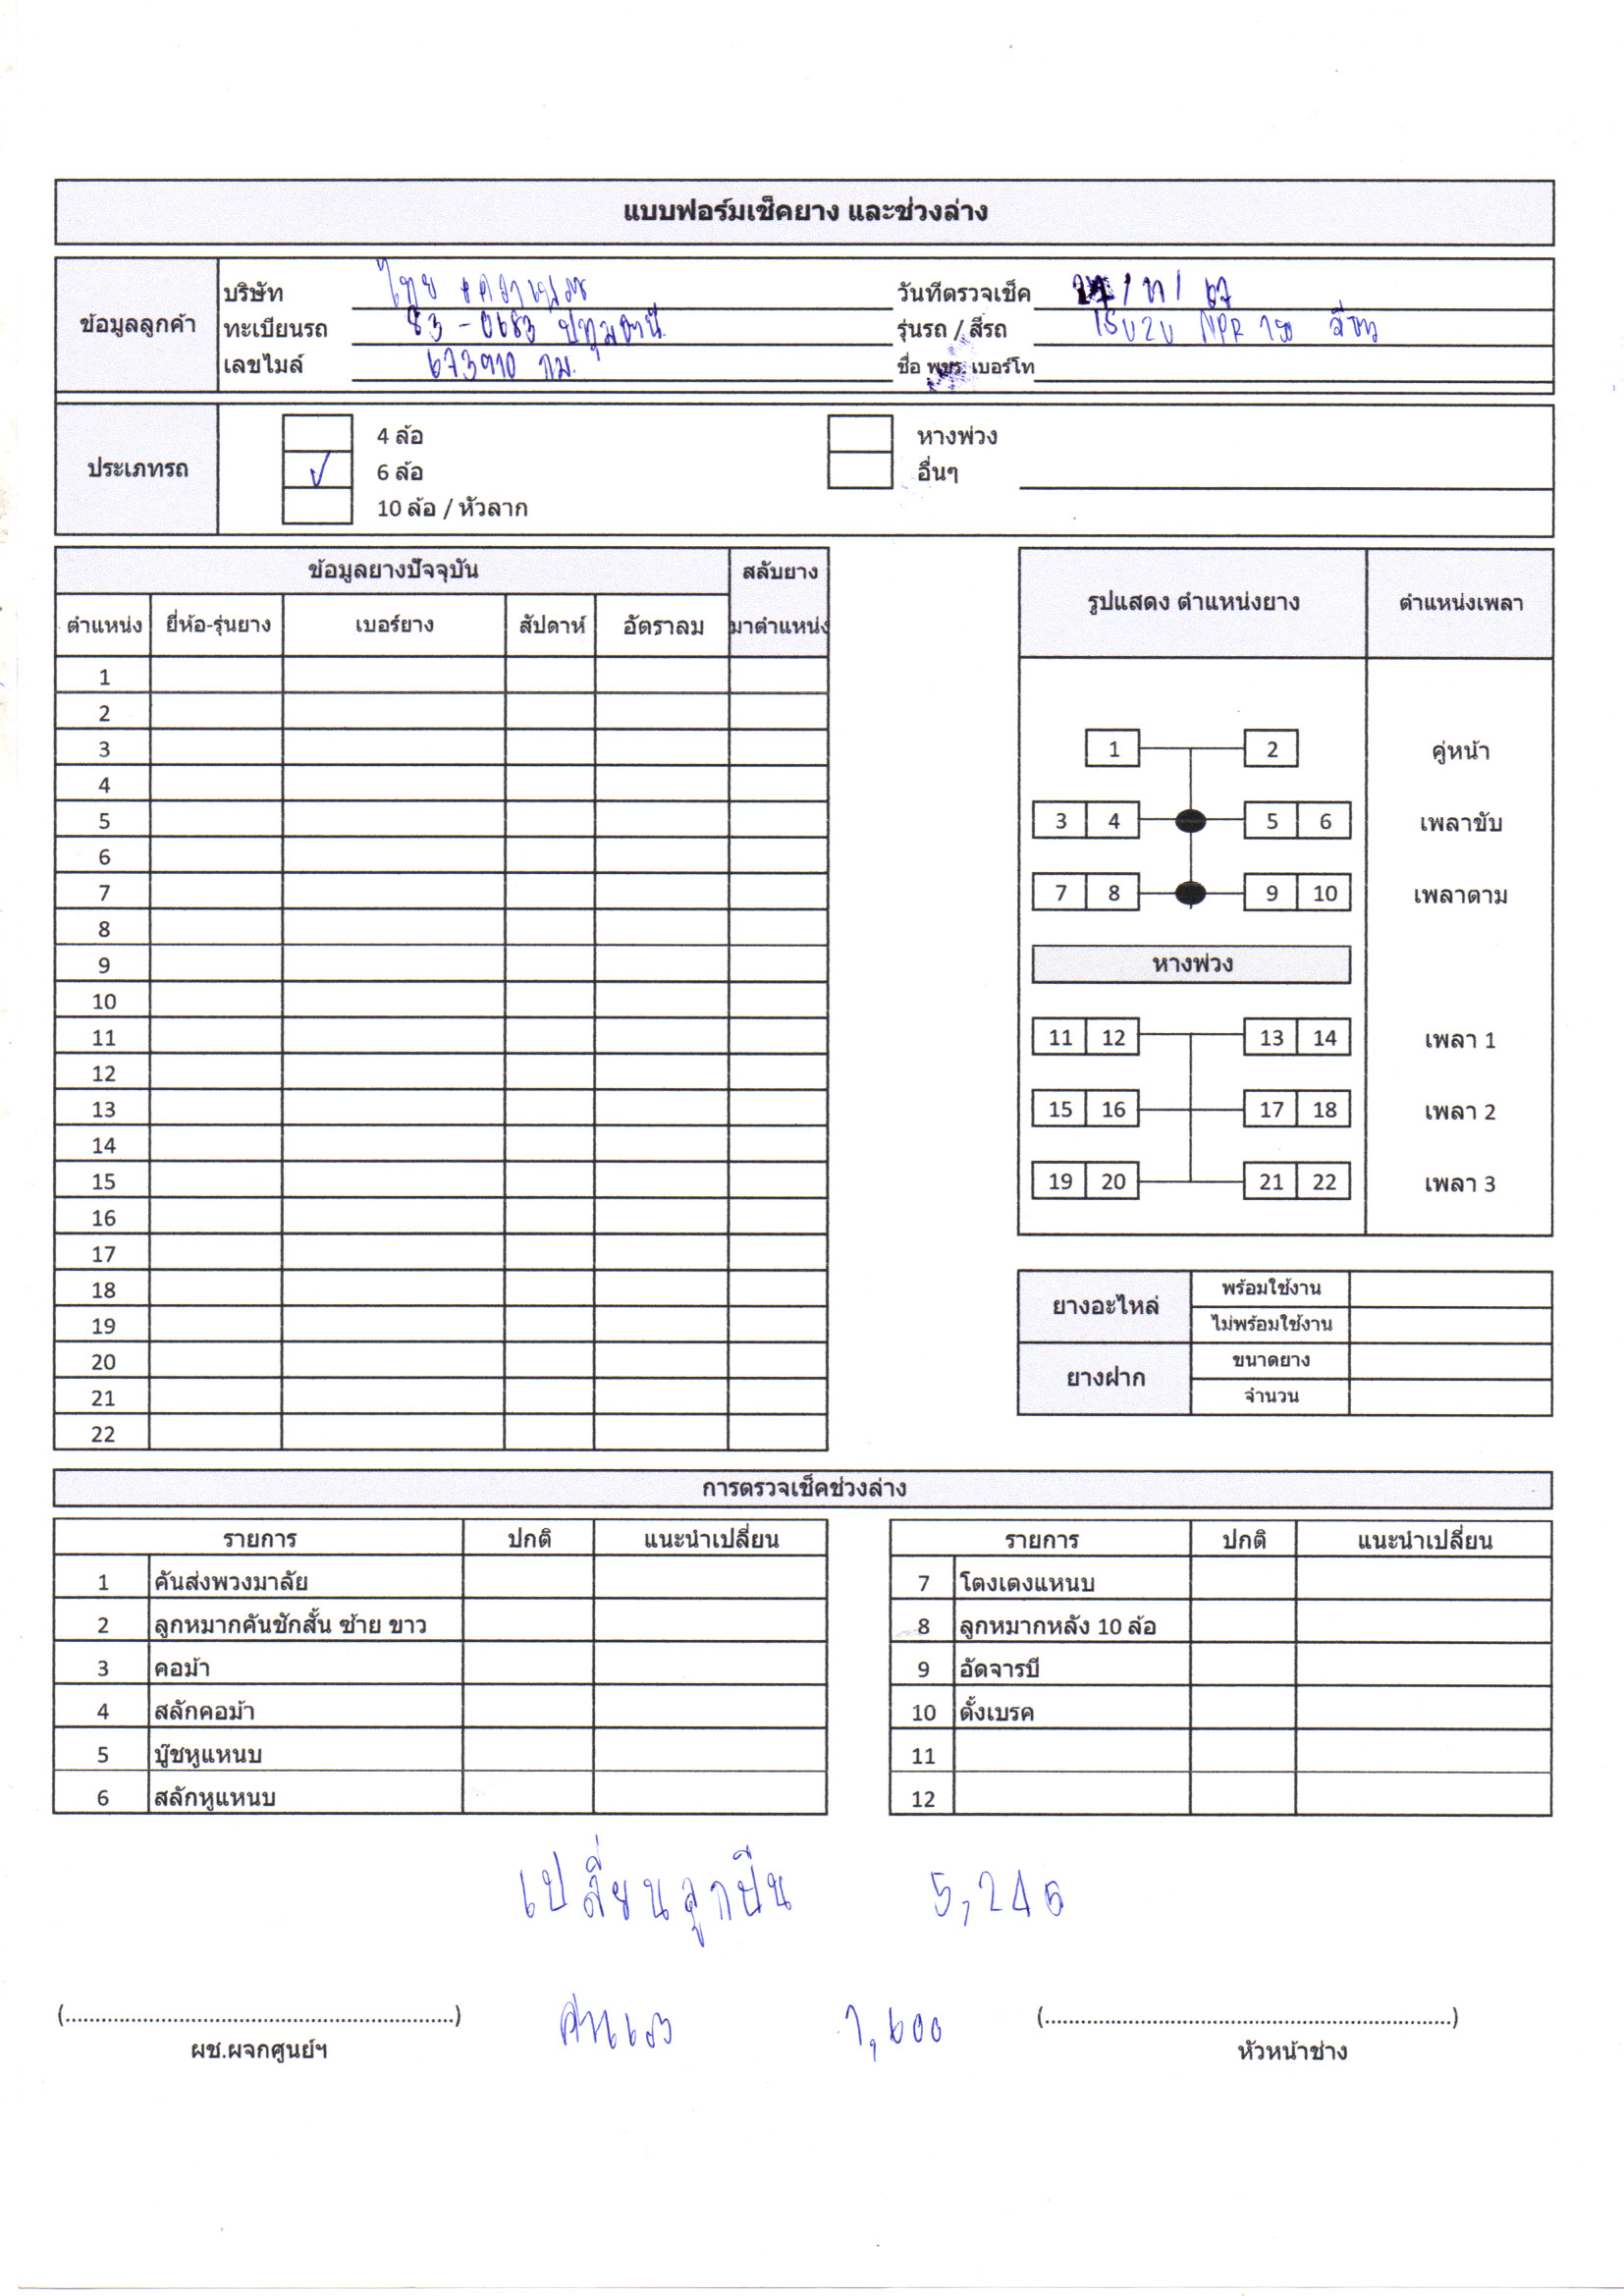 แบบฟอร์มเช็คยาง และช่วงล่าง
ข้อมูลลูกค้า
บริษัท ไทย
วันที่ตรวจเช็ค / 67
ทะเบียนรถ 83-0683 ปทุมธานี
รุ่นรถ / สีรถ ISUZU NPR 150 สีขาว
เลขไมล์ กม.
ชื่อ พขร. เบอร์โท
ประเภทรถ
4 ล้อ
หางพ่วง
✓ 6 ล้อ
อื่นๆ
10 ล้อ / หัวลาก
ข้อมูลยางปัจจุบัน สลับยาง
ตำแหน่ง ยี่ห้อ-รุ่นยาง เบอร์ยาง สัปดาห์ อัตราลม มาตำแหน่ง
1
2
3
4
5
6
7
8
9
10
11
12
13
14
15
16
17
18
19
20
21
22
รูปแสดง ตำแหน่งยาง ตำแหน่งเพลา
1 2 คู่หน้า
3 4 5 6 เพลาขับ
7 8 9 10 เพลาตาม
หางพ่วง
11 12 13 14 เพลา 1
15 16 17 18 เพลา 2
19 20 21 22 เพลา 3
ยางอะไหล่ พร้อมใช้งาน
ไม่พร้อมใช้งาน
ยางฝาก ขนาดยาง
จำนวน
การตรวจเช็คช่วงล่าง
รายการ ปกติ แนะนำเปลี่ยน
1 คันส่งพวงมาลัย
2 ลูกหมากคันชักสั้น ซ้าย ขาว
3 คอม้า
4 สลักคอม้า
5 บู๊ชหูแหนบ
6 สลักหูแหนบ
รายการ ปกติ แนะนำเปลี่ยน
7 โตงเตงแหนบ
8 ลูกหมากหลัง 10 ล้อ
9 อัดจารบี
10 ตั้งเบรค
11
12
เปลี่ยนลูกปืน 5,246
(................................................................)
ค่าแรง 1,600
(................................................................)
ผช.ผจกศูนย์ฯ
หัวหน้าช่าง